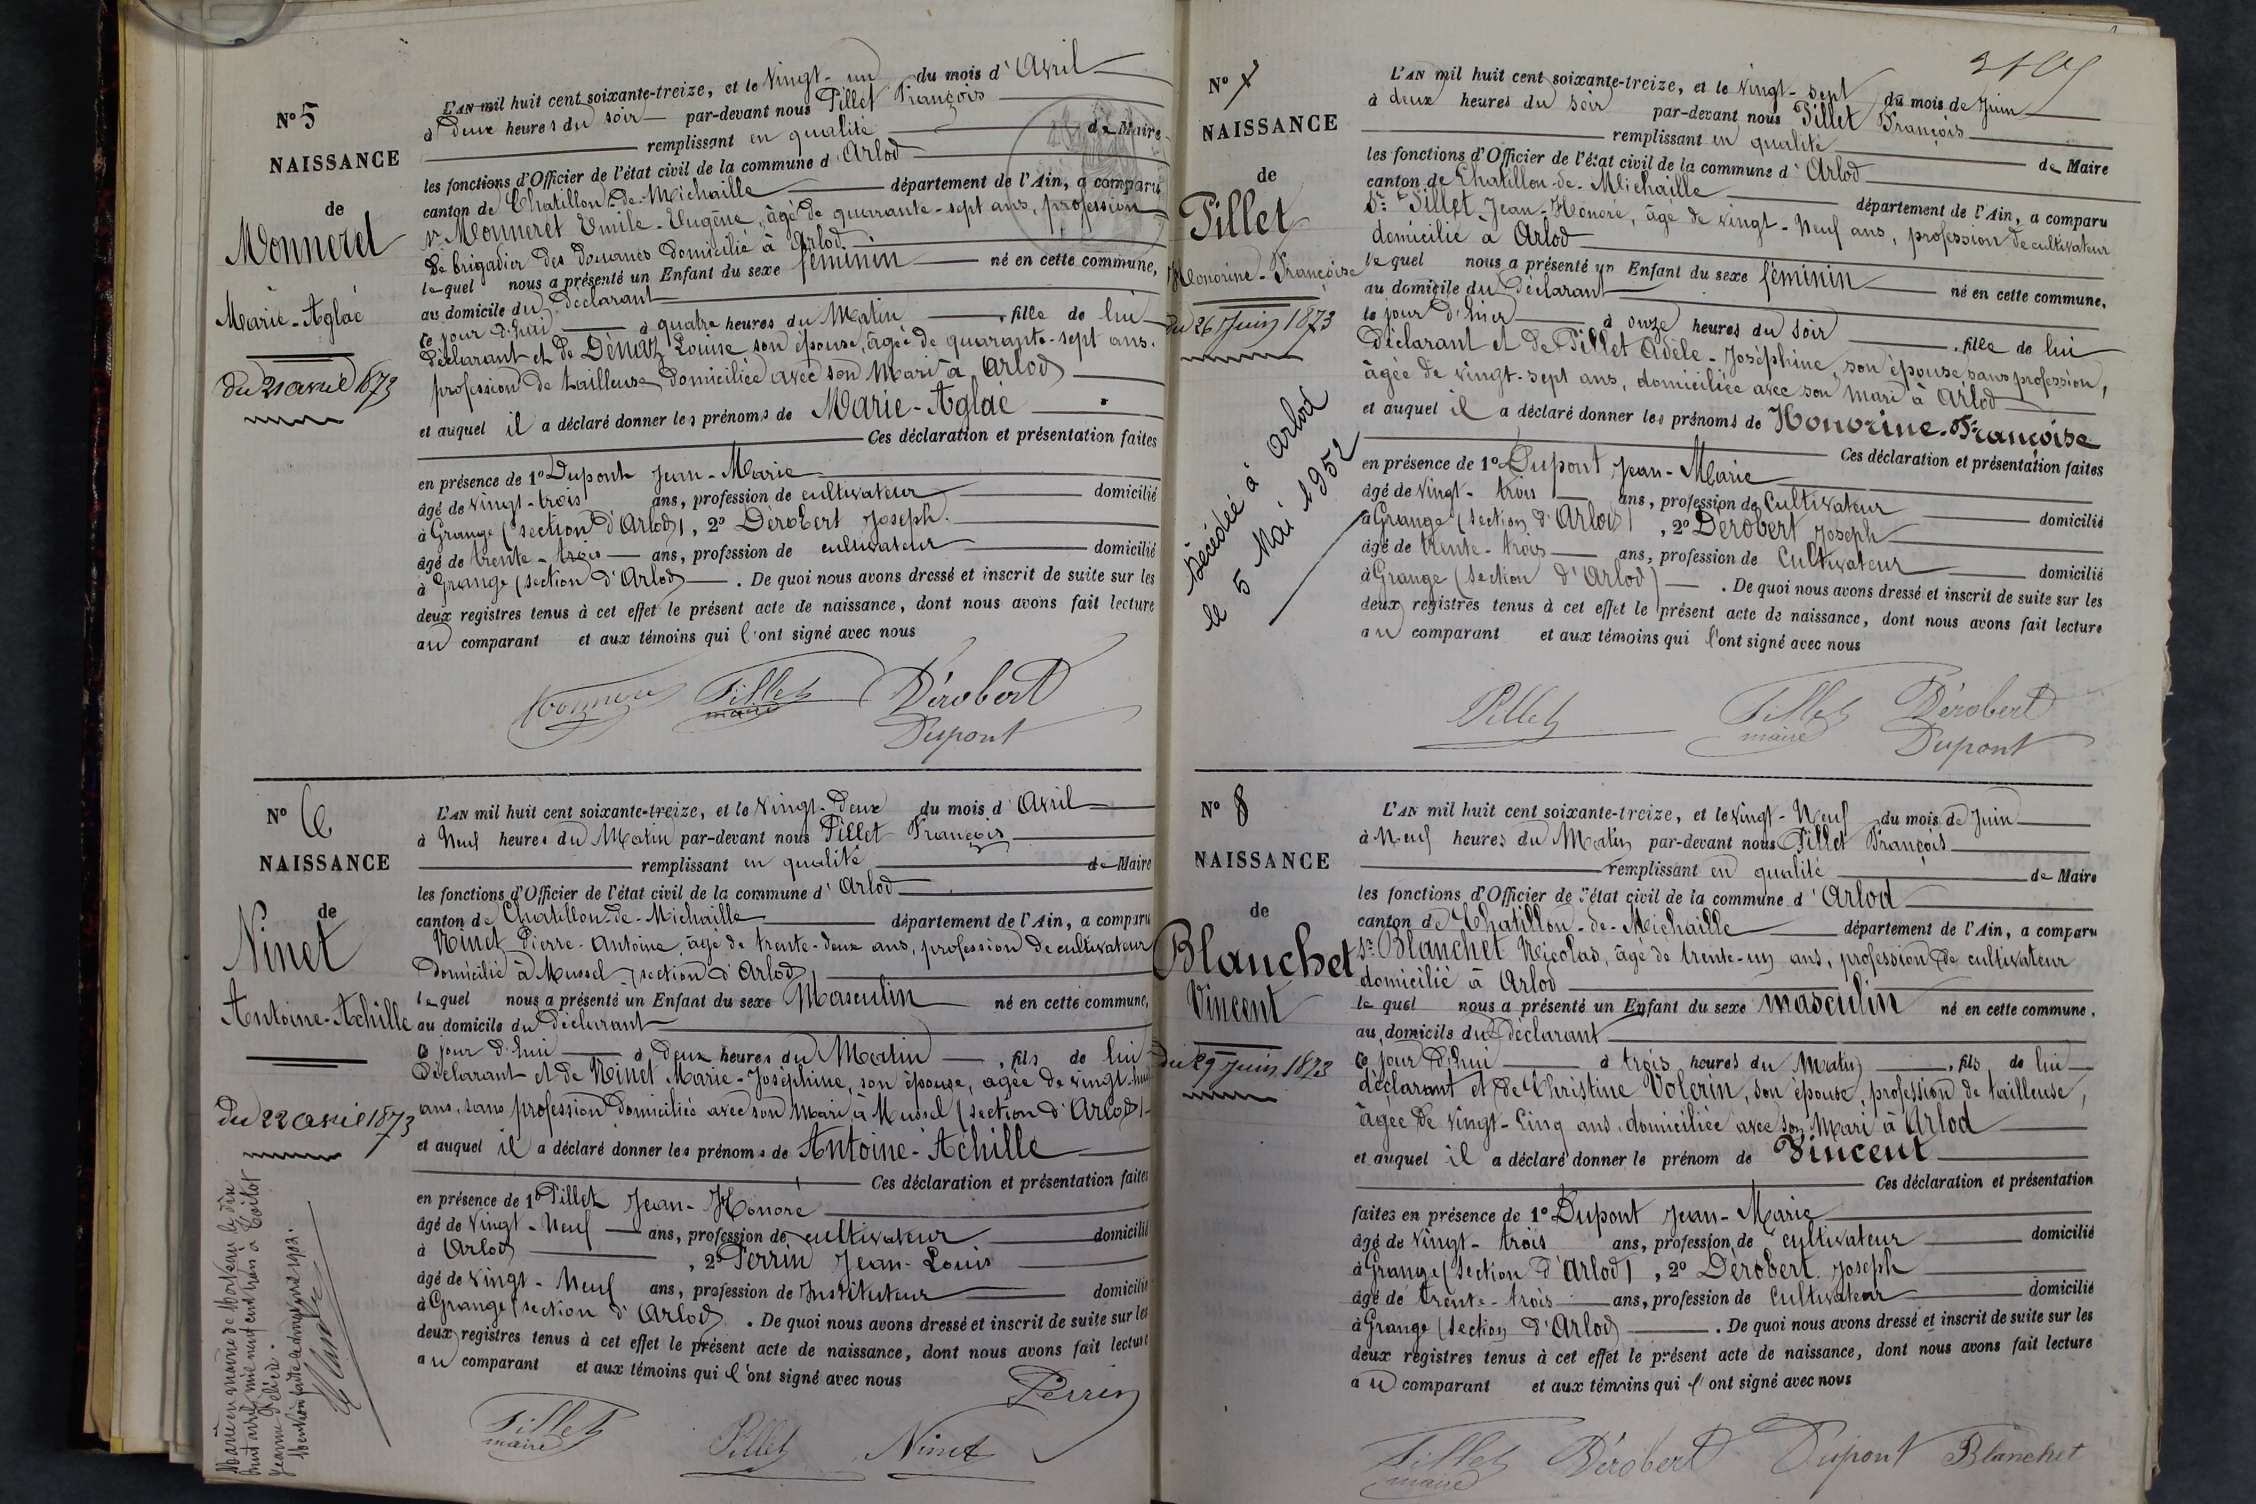 N° 5
NAISSANCE
de
Monneret
Marie-Aglaé
du 21 avril 1873
L'AN mil huit cent soixante-treize, et le vingt-un du mois d'Avril
à deux heures du soir par-devant nous Pillet François
remplissant en qualité de Maire
les fonctions d'Officier de l'état civil de la commune d'Arlod
canton de Chatillon-de-Michaille département de l'Ain, a comparu
Sr Monneret Emile-Eugène, âgé de quarante-sept ans, profession
de brigadier des douanes domicilié à Arlod
lequel nous a présenté un Enfant du sexe féminin né en cette commune,
au domicile du déclarant
ce jour d'hui à quatre heures du Matin, fille de lui
déclarant et de Démaz Louise son épouse, âgée de quarante-sept ans.
profession de tailleuse domiciliée avec son Mari à Arlod
et auquel il a déclaré donner les prénoms de Marie-Aglaé
Ces déclaration et présentation faites
en présence de 1° Dupont Jean-Marie
âgé de vingt-trois ans, profession de cultivateur domicilié
à Grange (section d'Arlod), 2° Dérobert Joseph.
âgé de trente-trois ans, profession de cultivateur domicilié
à Grange (section d'Arlod). De quoi nous avons dressé et inscrit de suite sur les
deux registres tenus à cet effet le présent acte de naissance, dont nous avons fait lecture
au comparant et aux témoins qui l'ont signé avec nous
Monneret Pillet Dérobert
maire
Dupont
N° 6
NAISSANCE
de
Ninet
Antoine-Achille
du 22 avril 1873
Marié en mairie de
huit avril mil neuf cent trois à
Jeanne
Mention faite le 1903.
L'AN mil huit cent soixante-treize, et le vingt-deux du mois d'Avril
à Neuf heures du Matin par-devant nous Pillet François
remplissant en qualité de Maire
les fonctions d'Officier de l'état civil de la commune d'Arlod
canton de Chatillon-de-Michaille département de l'Ain, a comparu
Ninet Pierre-Antoine âgé de trente-deux ans, profession de cultivateur
domicilié à Mussel (section d'Arlod)
lequel nous a présenté un Enfant du sexe Masculin né en cette commune,
au domicile du déclarant
ce jour d'hui à deux heures du Matin, fils de lui
Déclarant et de Ninet Marie-Joséphine, son épouse, âgée de vingt-huit
ans, sans profession domiciliée avec son Mari à Mussel (section d'Arlod)
et auquel il a déclaré donner les prénoms de Antoine-Achille
Ces déclaration et présentation faites
en présence de 1° Pillet Jean-Honoré
âgé de vingt-Neuf ans, profession de cultivateur domicilié
à Arlod, 2° Perrin Jean-Louis
âgé de vingt-Neuf ans, profession de Instituteur domicilié
à Grange (section d'Arlod). De quoi nous avons dressé et inscrit de suite sur les
deux registres tenus à cet effet le présent acte de naissance, dont nous avons fait lecture
au comparant et aux témoins qui l'ont signé avec nous
Perrin
Pillet Pillet Ninet
maire
N° 7
NAISSANCE
de
Pillet
Honorine-Françoise
du 26 Juin 1873
Décédée à Arlod
le 5 Mai 1952
L'AN mil huit cent soixante-treize, et le vingt-sept du mois de Juin
à deux heures du soir par-devant nous Pillet François
remplissant en qualité de Maire
les fonctions d'Officier de l'état civil de la commune d'Arlod
canton de Chatillon-de-Michaille département de l'Ain, a comparu
Sr Pillet Jean-Honoré, âgé de vingt-Neuf ans, profession de cultivateur
domicilié à Arlod
lequel nous a présenté un Enfant du sexe féminin né en cette commune,
au domicile du déclarant
le jour d'hier à onze heures du soir, fille de lui
Déclarant et de Pillet Adèle-Joséphine, son épouse sans profession,
âgée de vingt-sept ans, domiciliée avec son mari à Arlod
et auquel il a déclaré donner les prénoms de Honorine-Françoise
Ces déclaration et présentation faites
en présence de 1° Dupont Jean-Marie
âgé de vingt-trois ans, profession de Cultivateur domicilié
à Grange (section d'Arlod), 2° Dérobert Joseph
âgé de trente-trois ans, profession de Cultivateur domicilié
à Grange (section d'Arlod). De quoi nous avons dressé et inscrit de suite sur les
deux registres tenus à cet effet le présent acte de naissance, dont nous avons fait lecture
au comparant et aux témoins qui l'ont signé avec nous
Pillet Pillet Dérobert
maire Dupont
N° 8
NAISSANCE
de
Blanchet
Vincent
du 29 Juin 1873
L'AN mil huit cent soixante-treize, et le vingt-Neuf du mois de Juin
à Neuf heures du Matin par-devant nous Pillet François
remplissant en qualité de Maire
les fonctions d'Officier de l'état civil de la commune d'Arlod
canton de Chatillon-de-Michaille département de l'Ain, a comparu
Sr Blanchet Nicolas, âgé de trente-un ans, profession de cultivateur
domicilié à Arlod
lequel nous a présenté un Enfant du sexe masculin né en cette commune,
au domicile du déclarant
ce jour d'hui à trois heures du Matin, fils de lui
déclarant et de Christine Volerin, son épouse, profession de tailleuse,
âgée de vingt-cinq ans, domiciliée avec son Mari à Arlod
et auquel il a déclaré donner le prénom de Vincent
Ces déclaration et présentation
faites en présence de 1° Dupont Jean-Marie
âgé de vingt-trois ans, profession de cultivateur domicilié
à Grange (section d'Arlod), 2° Dérobert Joseph
âgé de trente-trois ans, profession de Cultivateur domicilié
à Grange (section d'Arlod). De quoi nous avons dressé et inscrit de suite sur les
deux registres tenus à cet effet le présent acte de naissance, dont nous avons fait lecture
au comparant et aux témoins qui l'ont signé avec nous
Pillet Dérobert Dupont Blanchet
maire